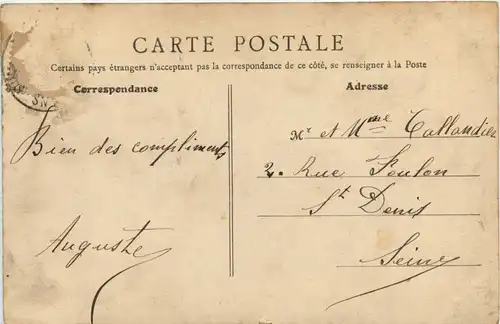 CARTE POSTALE
Certains pays étrangers n'acceptant pas la correspondance de ce côté, se renseigner à la Poste
Correspondance
Adresse
Bien des compliments
Auguste
Mr et Mme Tallandier
2. Rue Foulon
St Denis
Seine